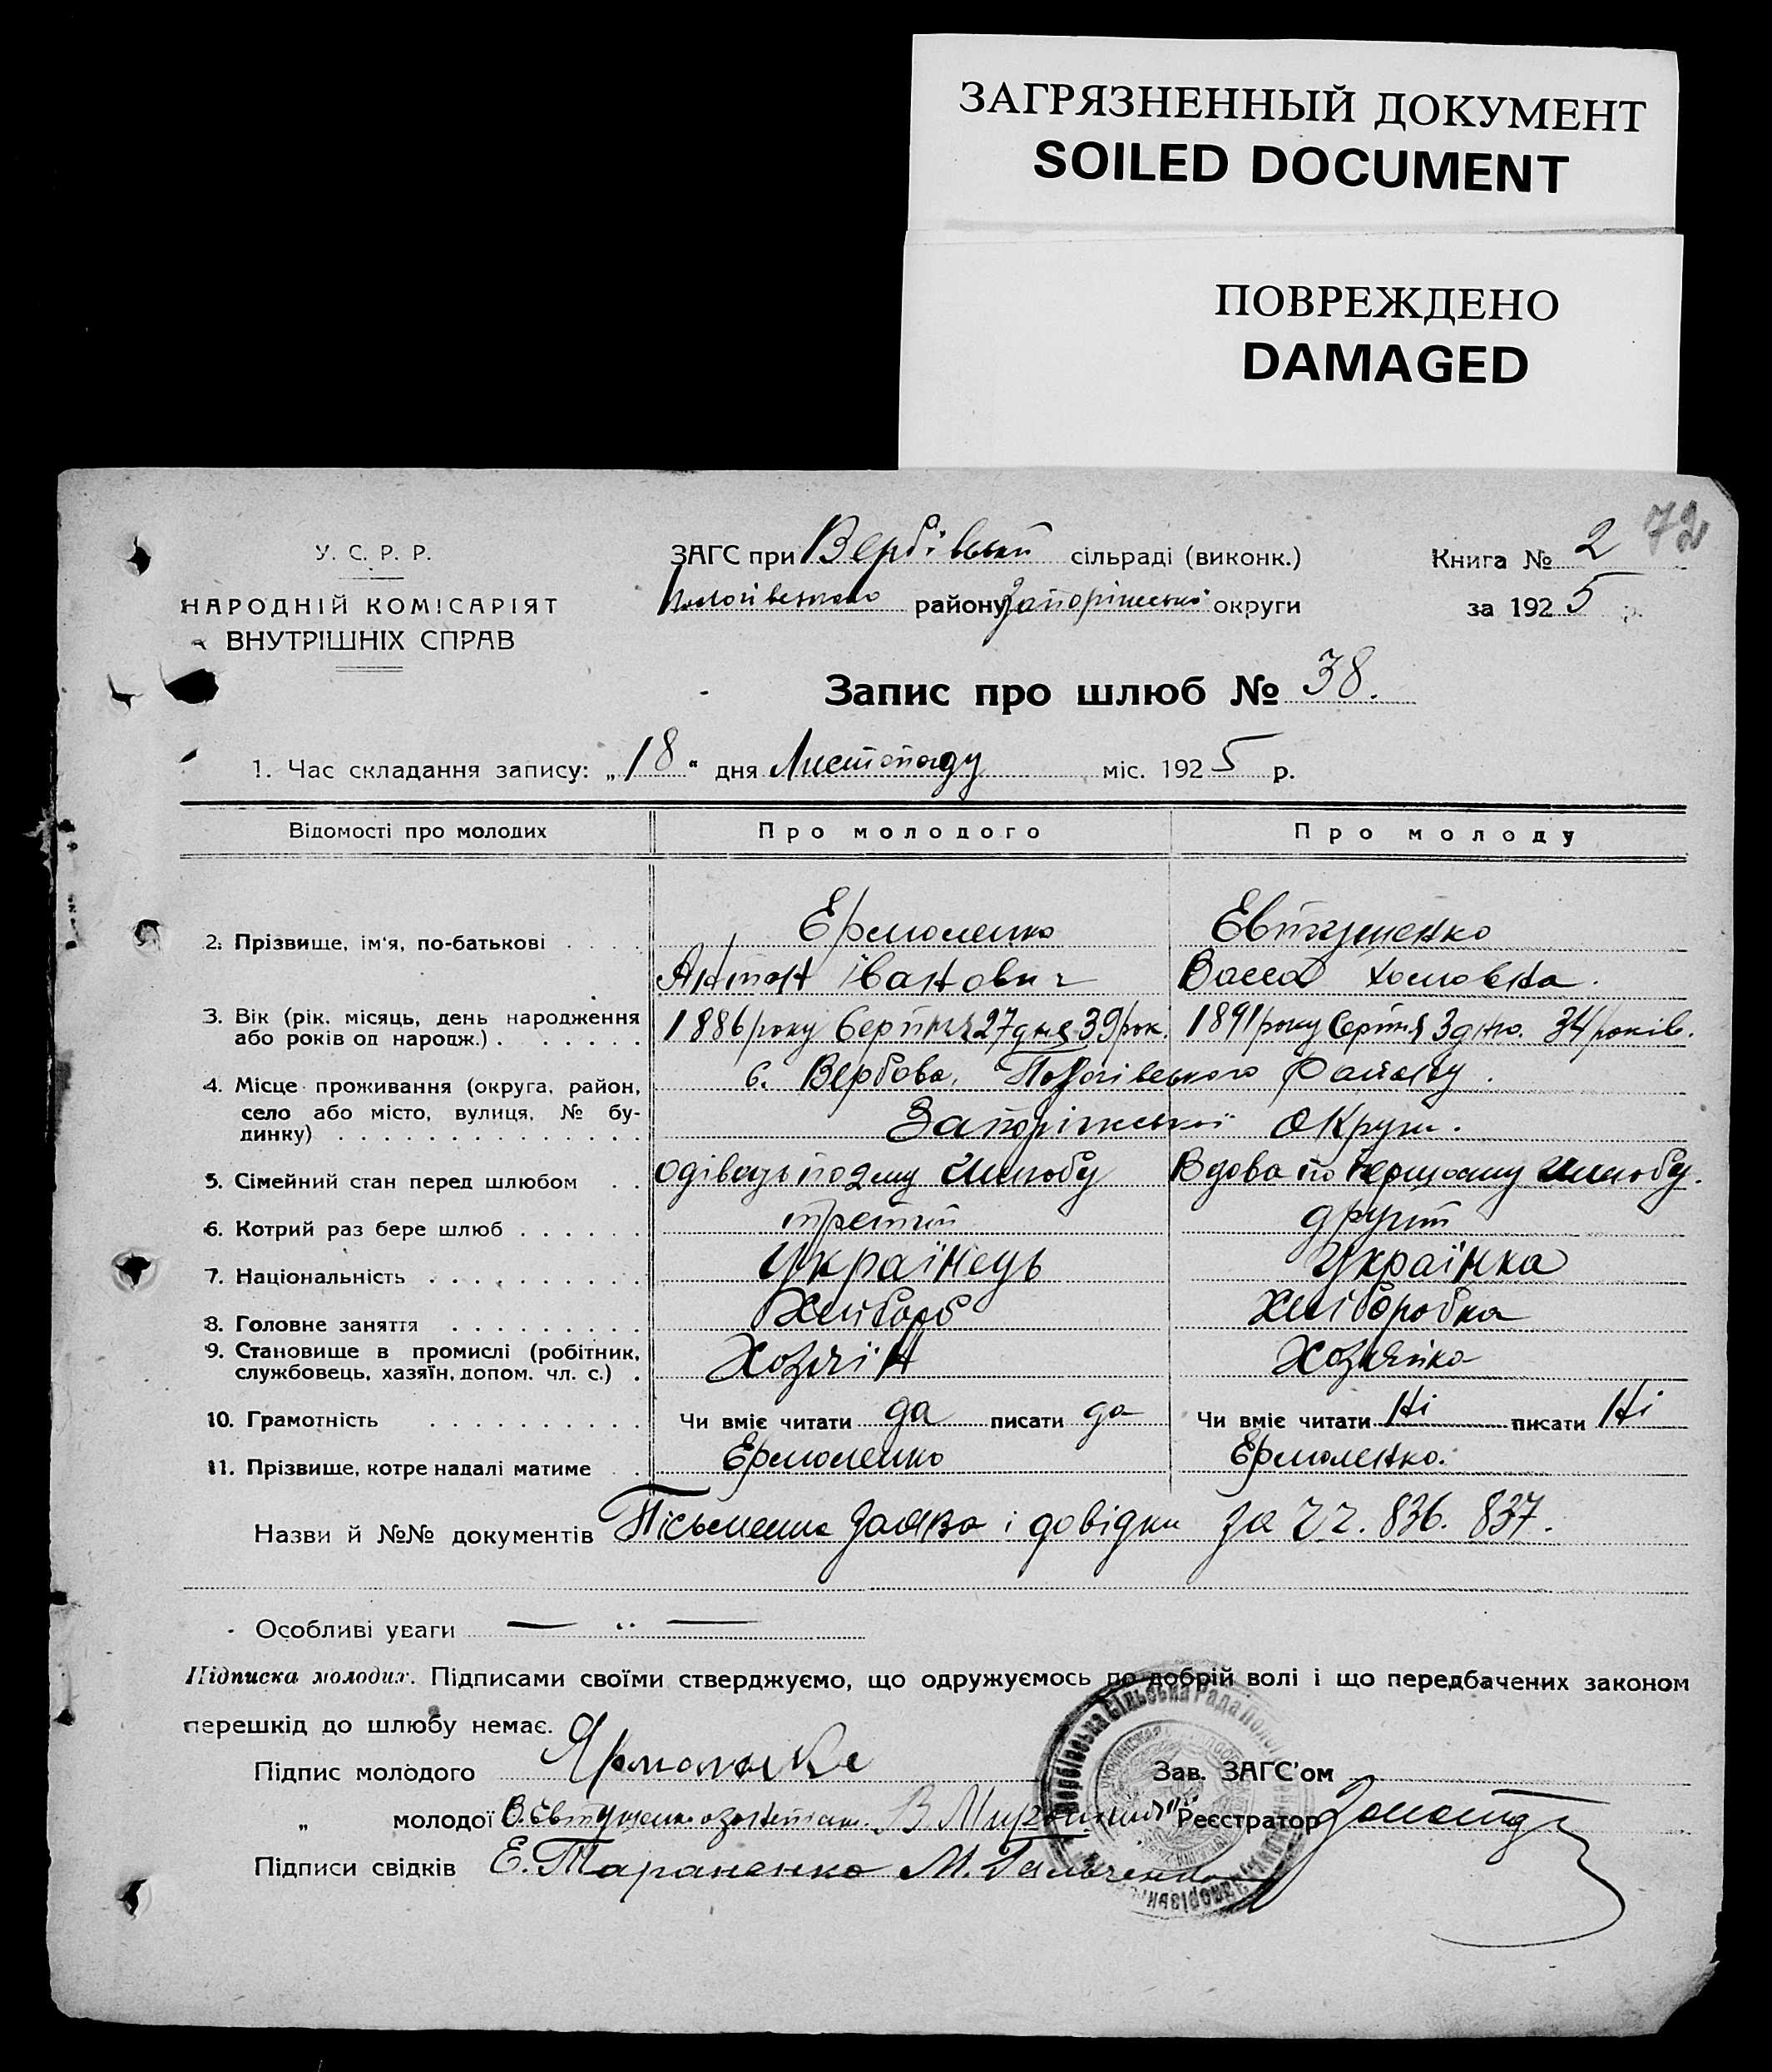 ЗАГРЯЗНЕННЫЙ ДОКУМЕНТ
SOILED DOCUMENT
ПОВРЕЖДЕНО
DAMAGED
72
У. С. Р. Р.
НАРОДНІЙ КОМІСАРІЯТ
ВНУТРІШНІХ СПРАВ
ЗАГС при Вербівській сільраді (виконк.)
Пологівського району Запоріжської округи
Книга № 2
за 1925 р.
Запис про шлюб № 38.
1. Час складання запису: „18" дня Листопаду міс. 1925 р.
Відомості про молодих Про молодого Про молоду
2. Прізвище, ім'я, по-батькові . . . . Ермоленко Евтушенко
Антон Іванович Васса Хомовна.
3. Вік (рік, місяць, день народження 1886 року Серпня 27 дня 39 рок. 1891 року Серпня 3 дню. 34 років.
або років од народж.) . . . . . . .
4. Місце проживання (округа, район, с. Вербова, Пологівського Району.
село або місто, вулиця, № бу- Запоріжської Округи.
динку) . . . . . . . . . . . . . .
5. Сімейний стан перед шлюбом . . одівець по 2му шлюбу Вдова по першому шлюбу.
6. Котрий раз бере шлюб . . . . . . третій другій
7. Національність . . . . . . . . . . Українець Українка
8. Головне заняття . . . . . . . . . Хлібороб Хліборобка
9. Становище в промислі (робітник, Хозяїн Хозяйка
службовець, хазяїн, допом. чл. с.) .
10. Грамотність . . . . . . . . . . Чи вміє читати да писати да Чи вміє читати Ні писати Ні
11. Прізвище, котре надалі матиме . . Ермоленко Ермоленко.
Назви й №№ документів Пісьменна заява і довідки за чч. 836. 837.
Особливі уваги — „ —
Підписка молодих. Підписами своїми стверджуємо, що одружуємось по добрій волі і що передбачених законом
перешкід до шлюбу немає.
Підпис молодого Ярмоленко Зав. ЗАГС'ом
„ молодої В. Евтушенко В Реєстратор
Підписи свідків Е. Тараненко М.
Вербівська Сільська Рада